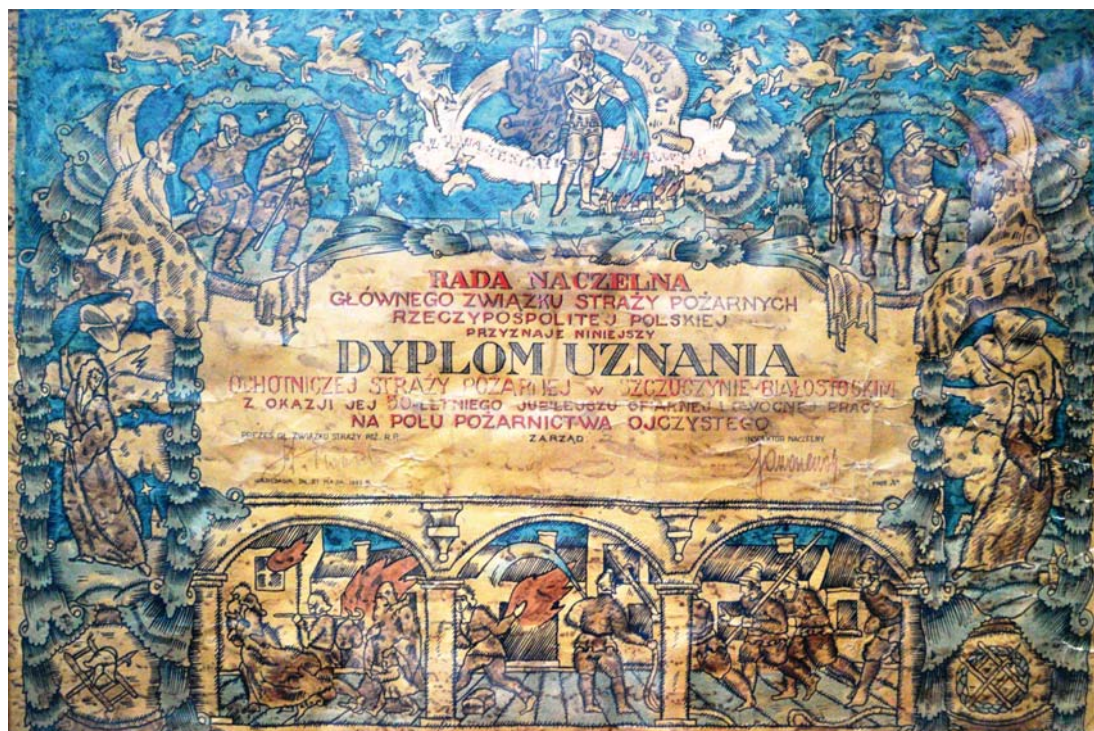 RADA NACZELNA
GŁÓWNEGO ZWIĄZKU STRAŻY POŻARNYCH
RZECZYPOSPOLITEJ POLSKIEJ
PRZYZNAJE NINIEJSZY
DYPLOM UZNANIA
OCHOTNICZEJ STRAŻY POŻARNEJ w SZCZUCZYNIE-BIAŁOSTOCKIM
Z OKAZJI JEJ 50-LETNIEGO JUBILEJSZU OFIARNEJ I OWOCNEJ PRACY
NA POLU POŻARNICTWA OJCZYSTEGO
PREZES GŁ. ZWIĄZKU STRAŻY POŻ. R.P.
ZARZĄD
INSPEKTOR NACZELNY